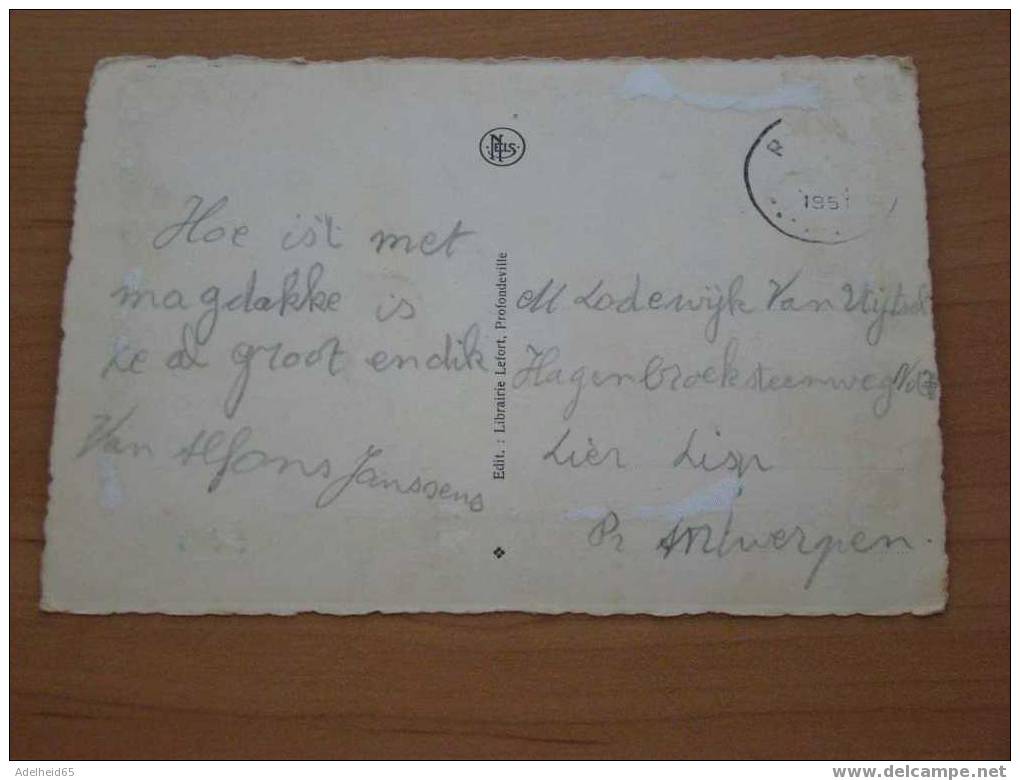 NELS
R
1951
Hoe ist met
magdakke is
ze al groot en dik
Van Alfons Janssens
Edit. : Librairie Lefort, Profondeville
M Lodewijk Van
Hagenbroeksteenweg No
Lier Lisp
Pr Antwerpen.
Adelheid65
www.delcampe.net